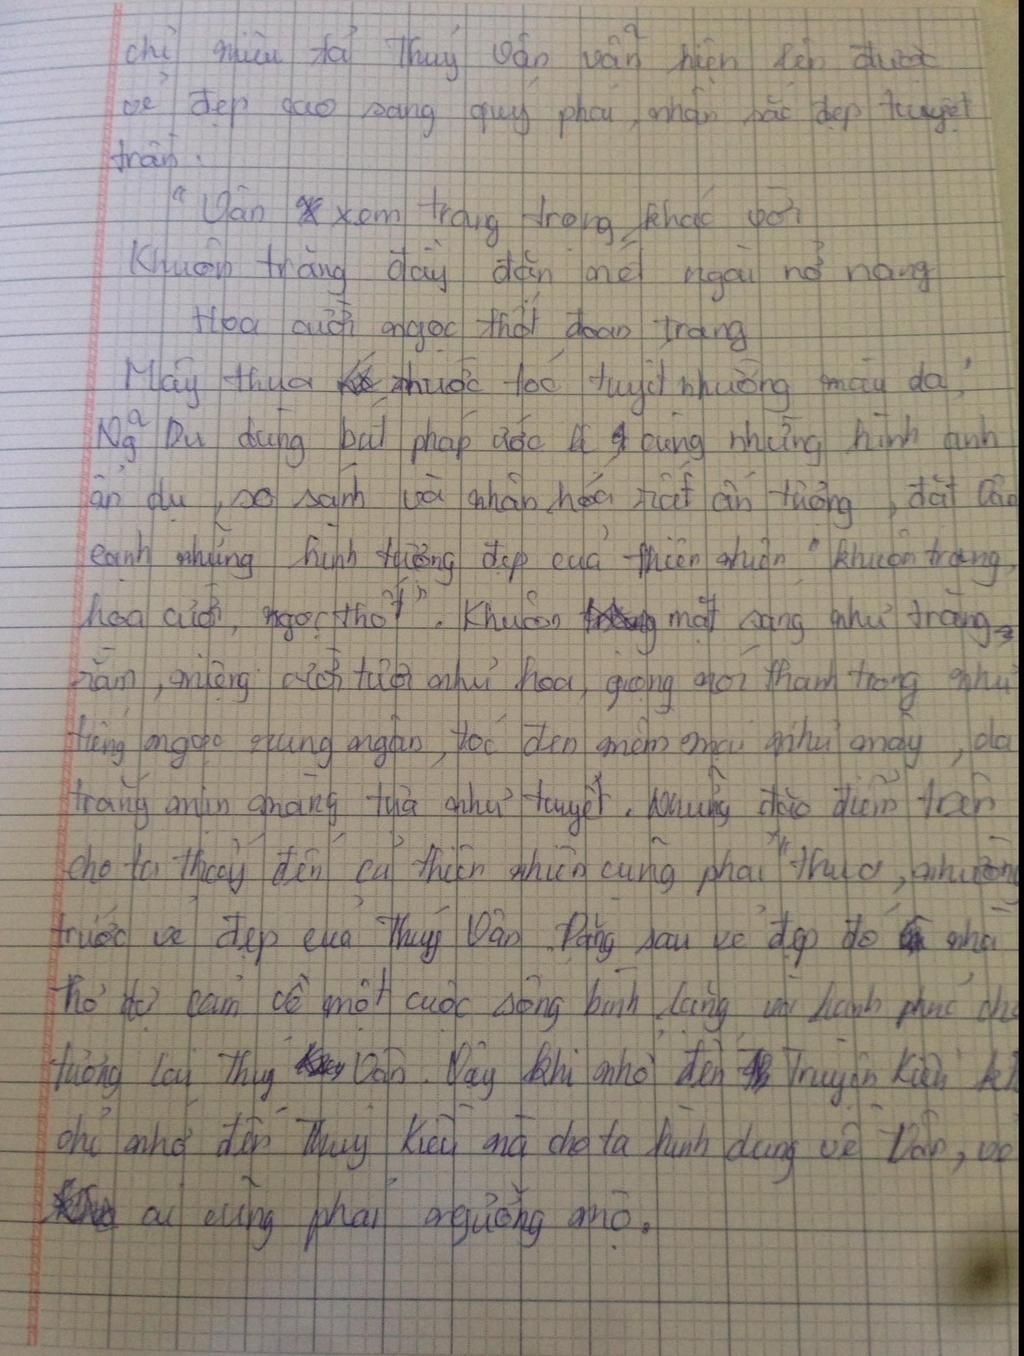 chỉ miêu tả Thuý Vân vẫn hiện lên được
vẻ đẹp cao sang quý phái, nhan sắc đẹp tuyệt
trần.
"Vân xem trang trọng khác vời
Khuôn trăng đầy đặn nét ngài nở nang
Hoa cười ngọc thốt đoan trang
Mây thua nước tóc tuyết nhường màu da"
Ng Du dùng bút pháp ước lệ cùng những hình ảnh
ẩn dụ, so sánh và nhân hoá rất ấn tượng, đặt bên
cạnh những hình tượng đẹp của thiên nhiên "khuôn trăng,
hoa cười, ngọc thốt". Khuôn mặt sáng như trăng
rằm, miệng cười tươi như hoa, giọng nói thanh trong như
tiếng ngọc rung ngân, tóc đen mềm mại như mây, da
trắng mịn màng tựa như tuyết. Những đặc điểm trên
cho ta thấy đến cả thiên nhiên cũng phải "thua, nhường"
trước vẻ đẹp của Thuý Vân. Đằng sau vẻ đẹp đó nhà
thơ dự cảm về một cuộc sống bình lặng và hạnh phúc cho
tương lai Thuý Vân. Vậy khi nhớ đến Truyện Kiều k
chỉ nhớ đến Thuý Kiều mà cho ta hình dung về Vân,
ai cũng phải ngưỡng mộ.